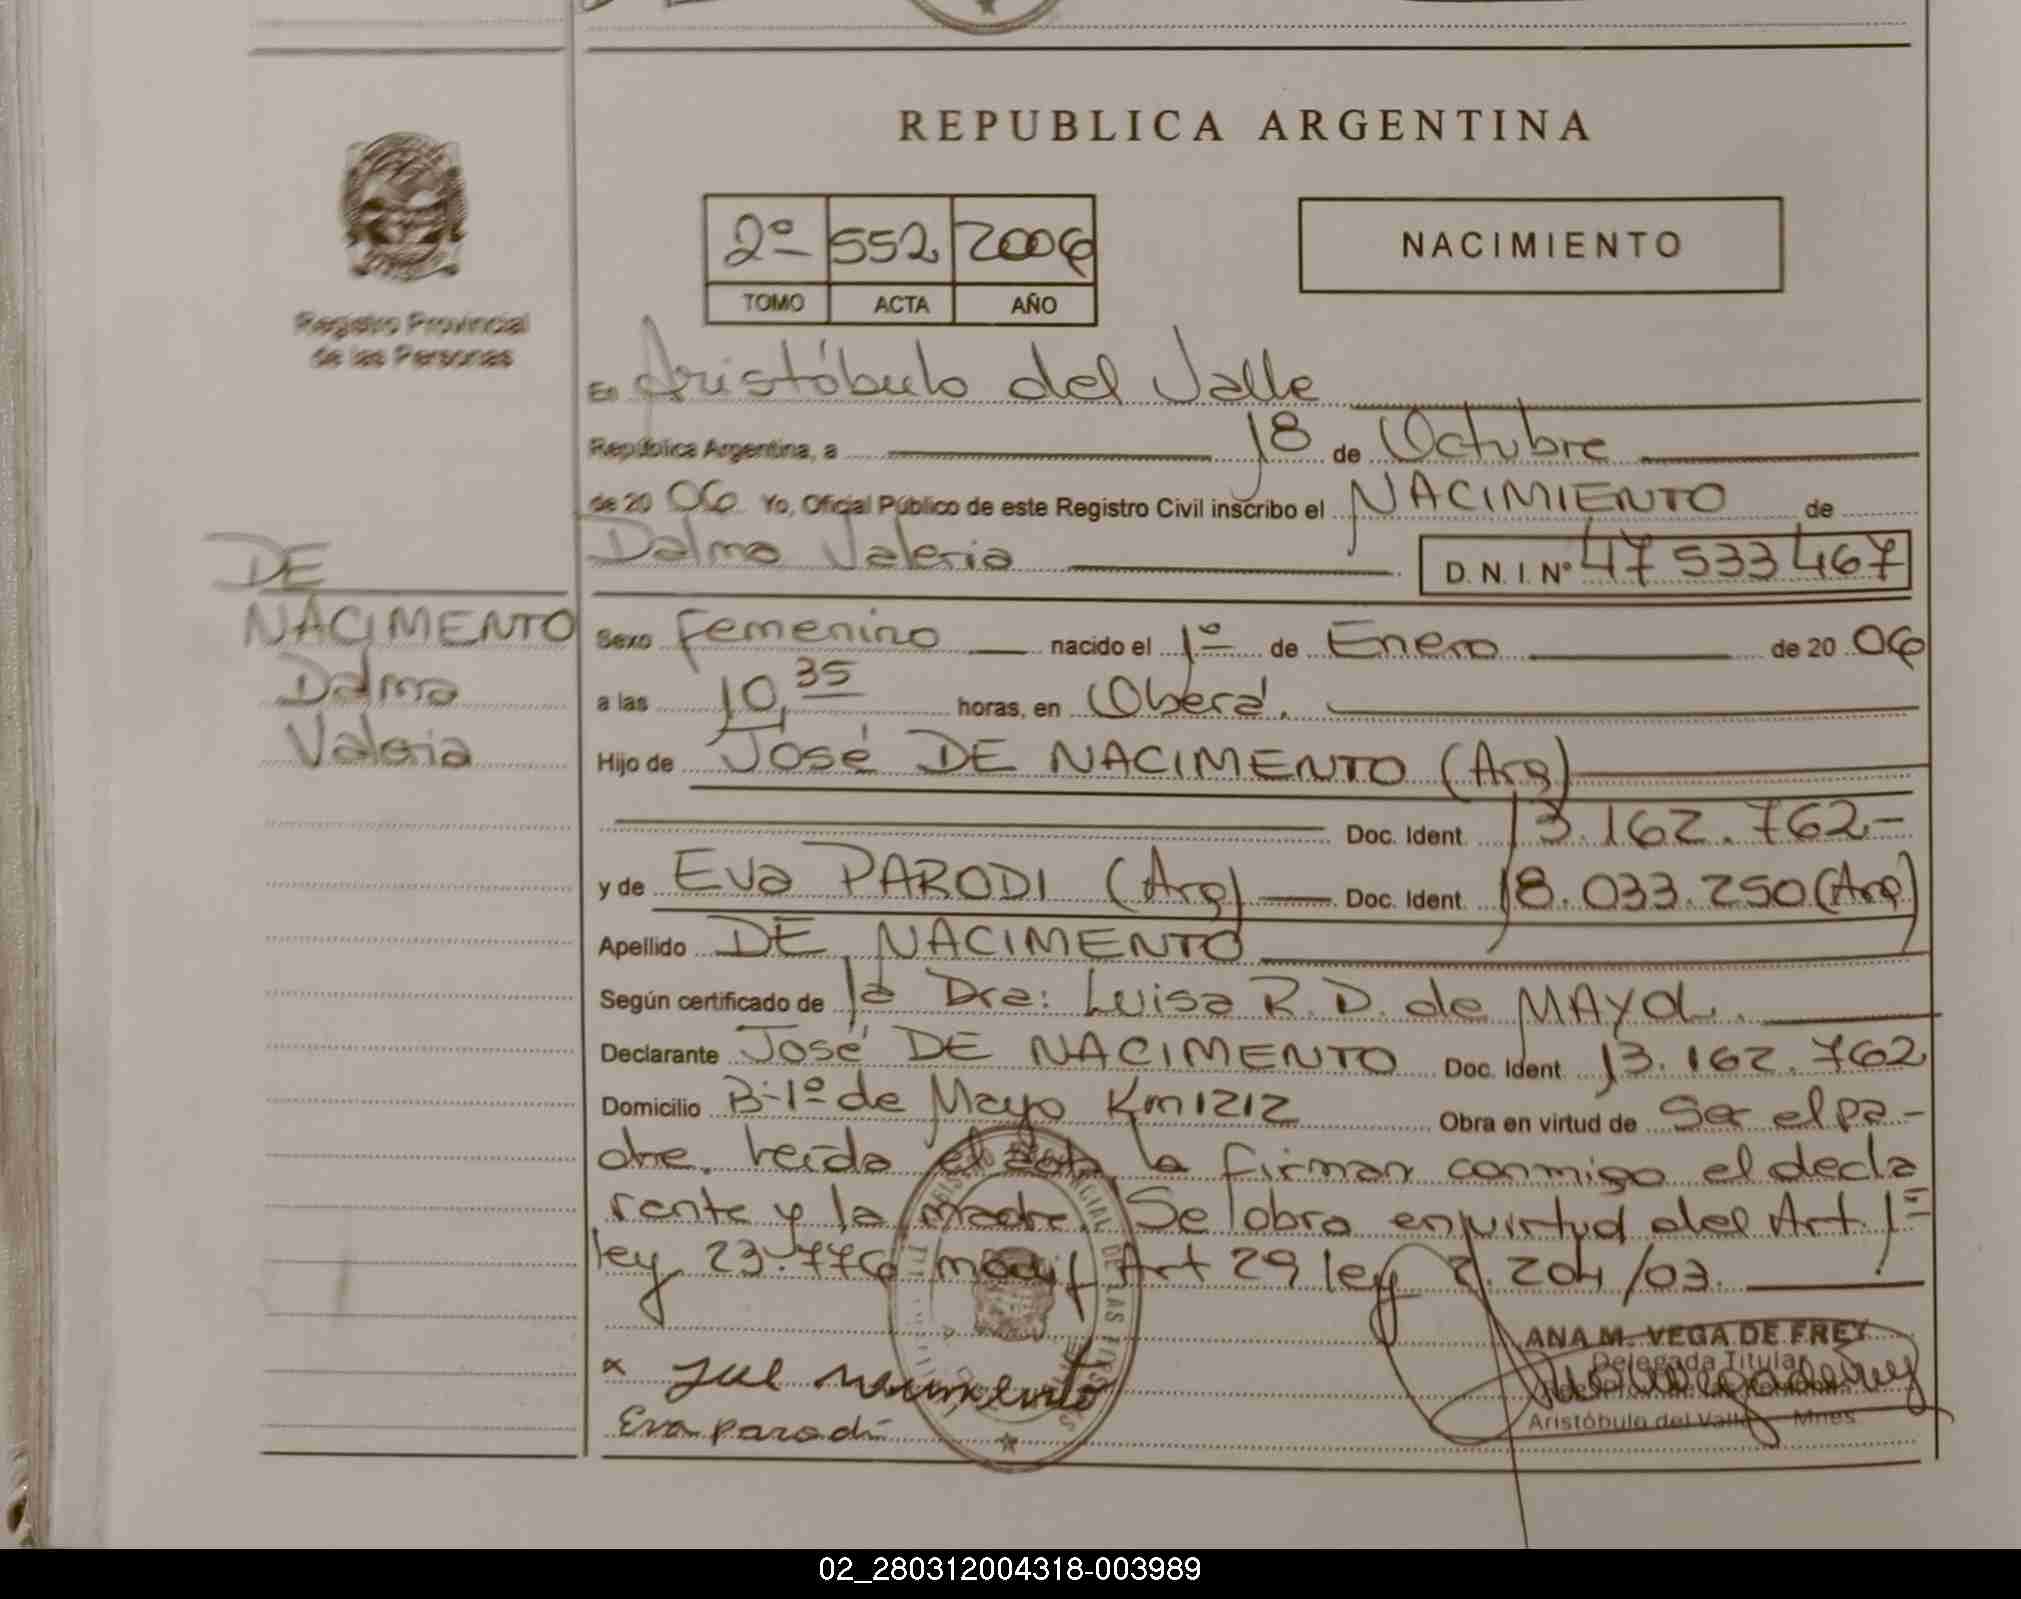 REPUBLICA ARGENTINA
Registro Provincial
de las Personas
2º 552 2006
TOMO ACTA AÑO
NACIMIENTO
En Aristóbulo del Valle
República Argentina, a 18 de Octubre
de 20 06 Yo, Oficial Público de este Registro Civil inscribo el NACIMIENTO de
Dalma Valeria D.N.I. Nº 47 533 467
DE
NACIMENTO
Dalma
Valeria
Sexo Femenino nacido el 1º de Enero de 20 06
a las 10,35 horas, en Oberá.
Hijo de José DE NACIMENTO (Arg)
Doc. Ident. 13.162.762-
y de Eva PARODI (Arg) Doc. Ident. 18.033.250 (Arg)
Apellido DE NACIMENTO
Según certificado de la Dra: Luisa R. D. de MAYOL.
Declarante José DE NACIMENTO Doc. Ident. 13.162.762
Domicilio B-1º de Mayo Km 1212 Obra en virtud de Ser el pa-
dre. Leída el acta, la firman conmigo el decla
rante y la madre. Se obra en virtud del Art. 1º
ley 23.776 modif Art 29 ley 2.204/03.
ANA M. VEGA DE FREY
Delegada Titular
Aristóbulo del Valle - Mnes
x José Nacimento
Eva parodi
02_280312004318-003989